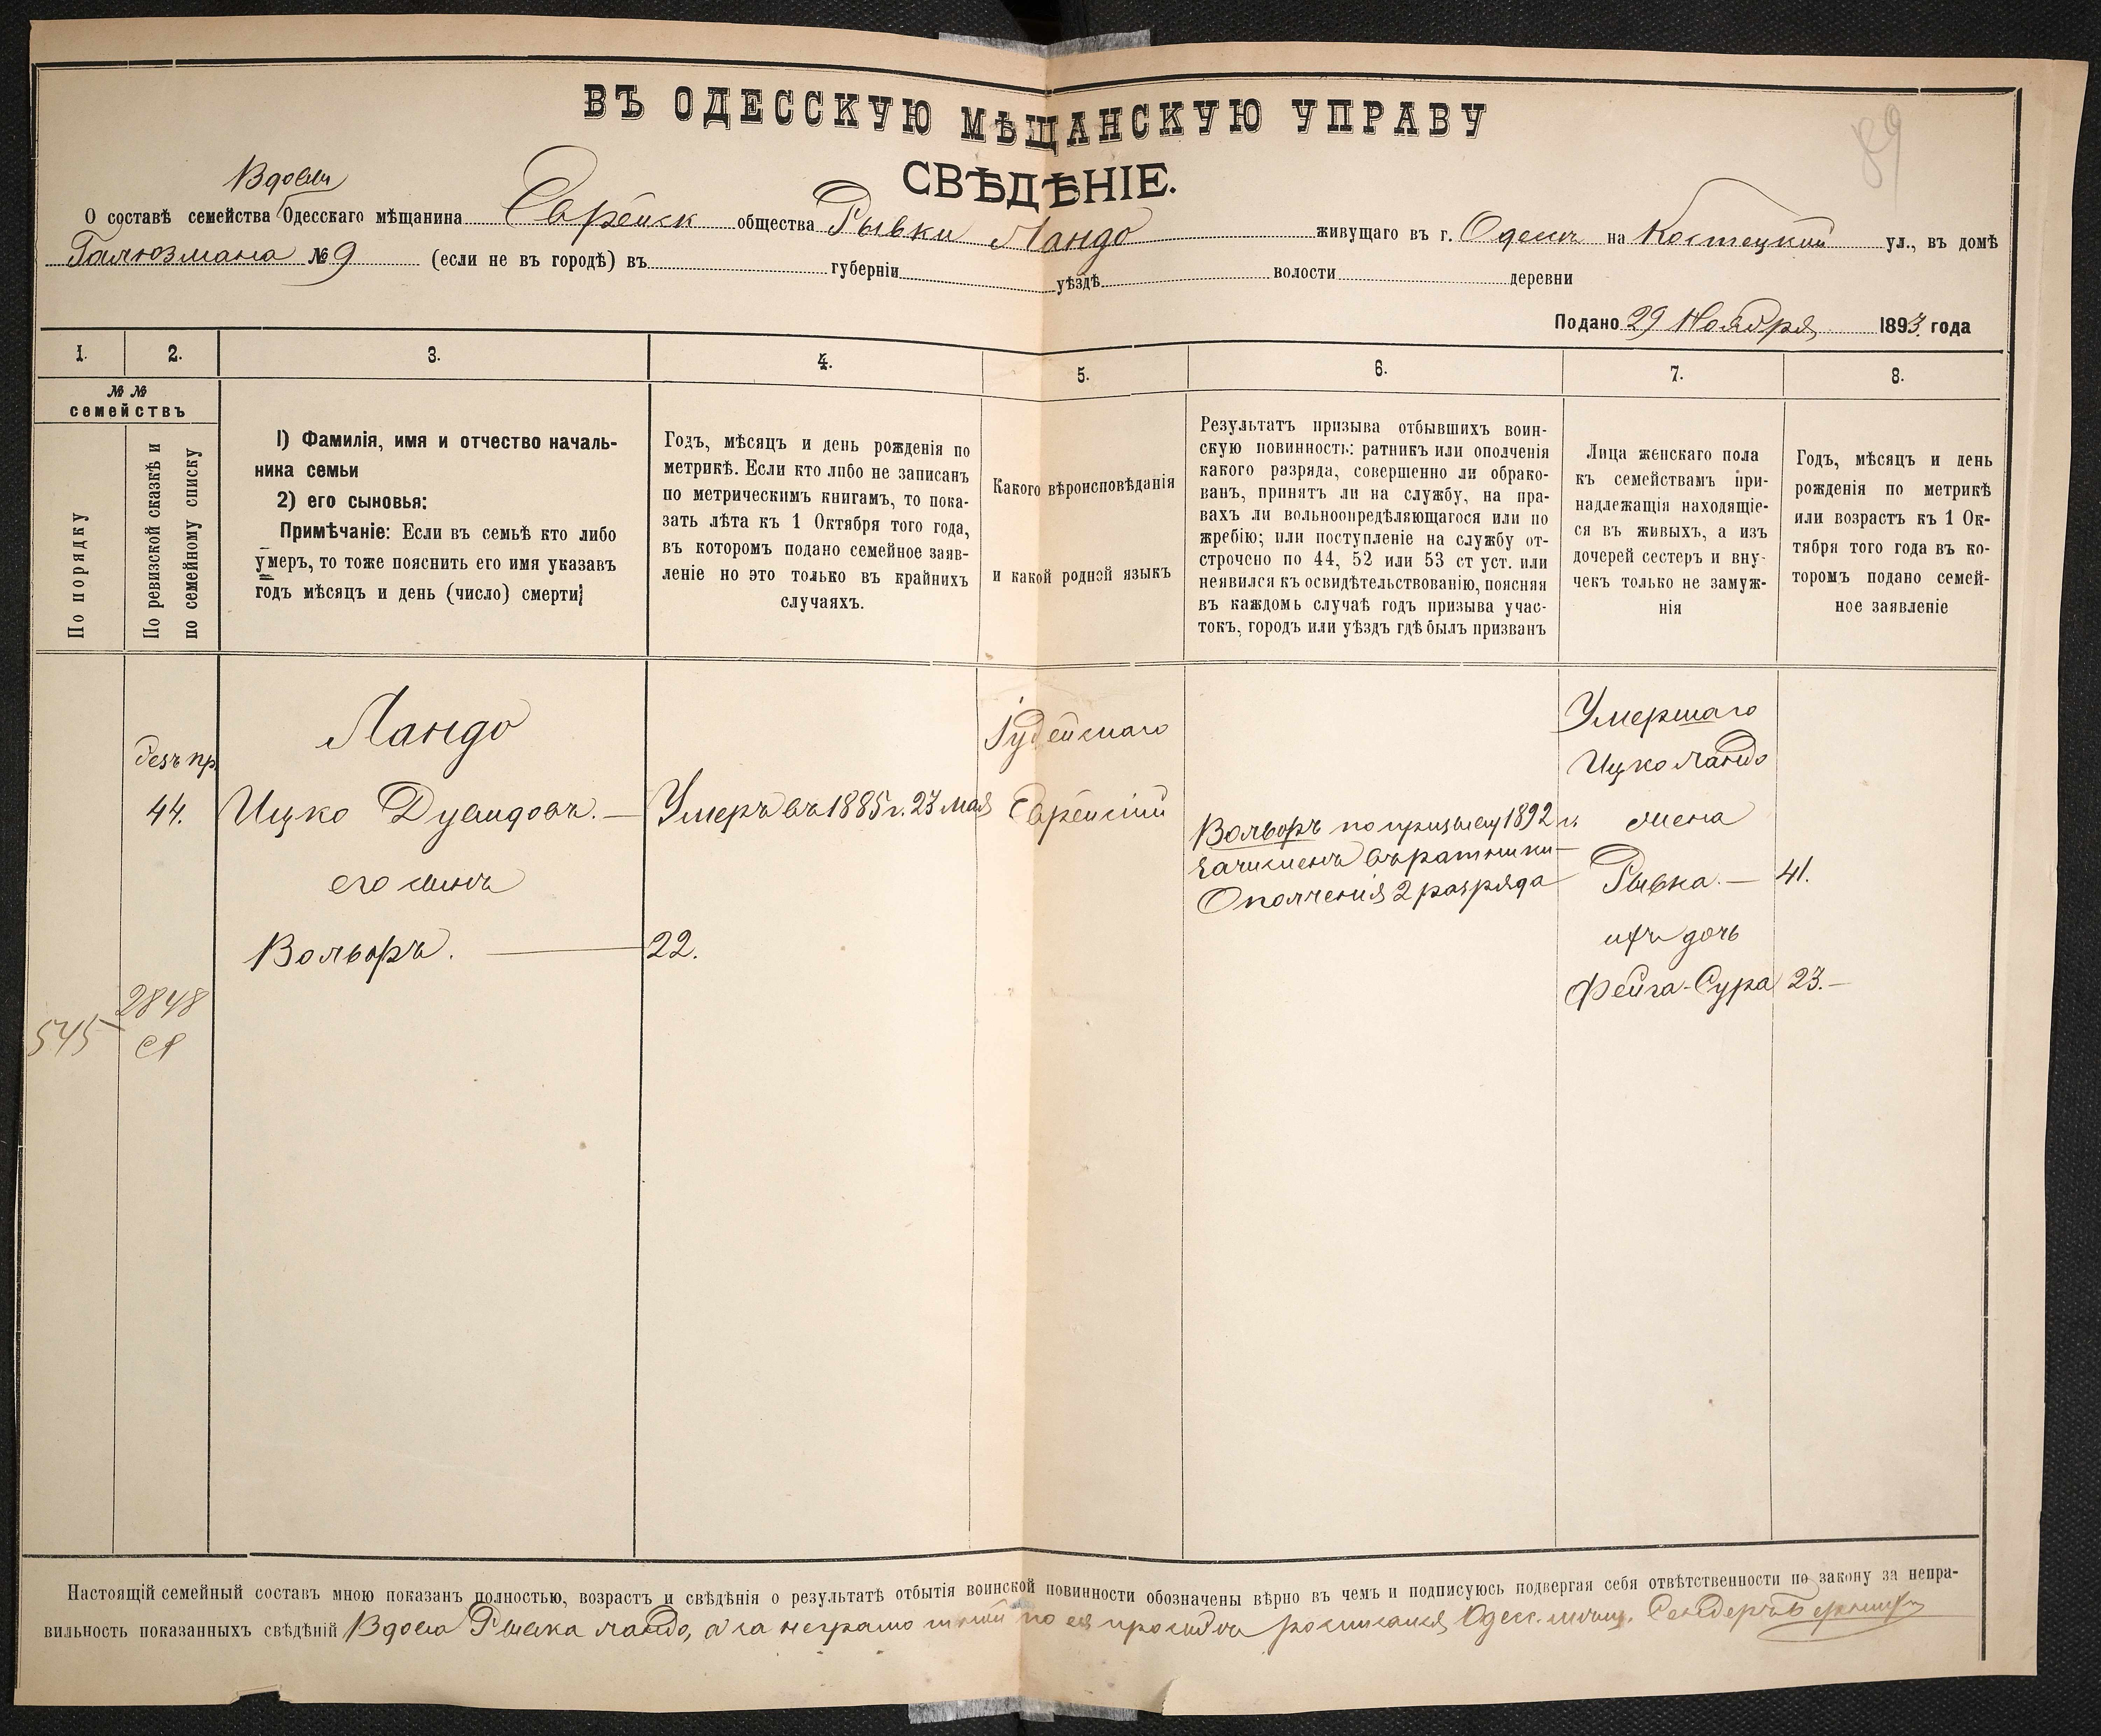 89
ВЪ ОДЕССКУЮ МѢЩАНСКУЮ УПРАВУ
СВѢДѢНІЕ.
Вдовы
О составѣ семейства Одесскаго мѣщанина Еврейск общества Рывки Ландо живущаго въ г. Одессѣ на Костецкий ул., въ домѣ
№ 9 (если не въ городѣ) въ губерніи уѣздѣ волости деревни
Подано 29 Ноября 1893 года
1. 2. 3. 4. 5. 6. 7. 8.
№ №
семействъ
По порядку
По ревизской сказкѣ и
по семейному списку
1) Фамилія, имя и отчество началь-
ника семьи
2) его сыновья:
Примѣчаніе: Если въ семьѣ кто либо
умеръ, то тоже пояснить его имя указавъ
годъ мѣсяцъ и день (число) смерти;
Годъ, мѣсяцъ и день рожденія по
метрикѣ. Если кто либо не записанъ
по метрическимъ книгамъ, то пока-
зать лѣта къ 1 Октября того года,
въ которомъ подано семейное заяв-
леніе но это только въ крайнихъ
случаяхъ.
Какого вѣроисповѣданія
и какой родной языкъ
Результатъ призыва отбывшихъ воин-
скую повинность: ратникъ или ополченія
какого разряда, совершенно ли обрако-
ванъ, принятъ ли на службу, на пра-
вахъ ли вольноопредѣляющагося или по
жребію; или поступленіе на службу от-
строчено по 44, 52 или 53 ст уст. или
неявился къ освидѣтельствованію, поясняя
въ каждомъ случаѣ годъ призыва учас-
токъ, городъ или уѣздъ гдѣ былъ призванъ
Лица женскаго пола
къ семействамъ при-
надлежащія находящіе-
ся въ живыхъ, а изъ
дочерей сестеръ и вну-
чекъ только не замуж-
нія
Годъ, мѣсяцъ и день
рожденія по метрикѣ
или возрастъ къ 1 Ок-
тября того года въ ко-
торомъ подано семей-
ное заявленіе
безъ пр.
44.
2848
545
Ландо
Ицко Дувидовъ. —
его сынъ
Вольфъ. —
Умеръ въ 1885 г. 23 мая
22.
Іудейскаго
Еврейскій
Вольфъ по призыву 1892 г.
зачисленъ въ ратники
Ополченія 2 разряда
Умершаго
Ицко Ландо
жена
Рывка. — 41.
ихъ дочь
Фейга-Сура 23. —
Настоящій семейный составъ мною показанъ полностью, возрастъ и свѣдѣнія о результатѣ отбытія воинской повинности обозначены вѣрно въ чемъ и подписуюсь подвергая себя отвѣтственности по закону за непра-
вильность показанныхъ свѣдѣній Вдова Рывка Ландо, а за неграмотной по ея просьбѣ росписался Одесс. мѣщ.